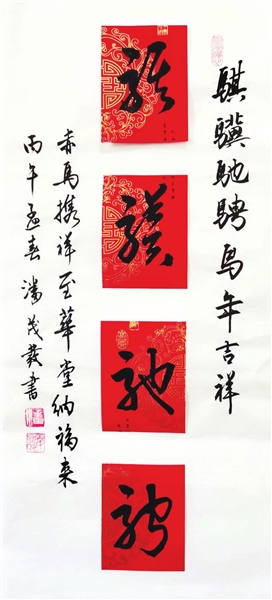 騏驥馳騁馬年吉祥
騏
驥
馳
騁
赤馬攜祥至華堂納福来
丙午孟春潘茂發書